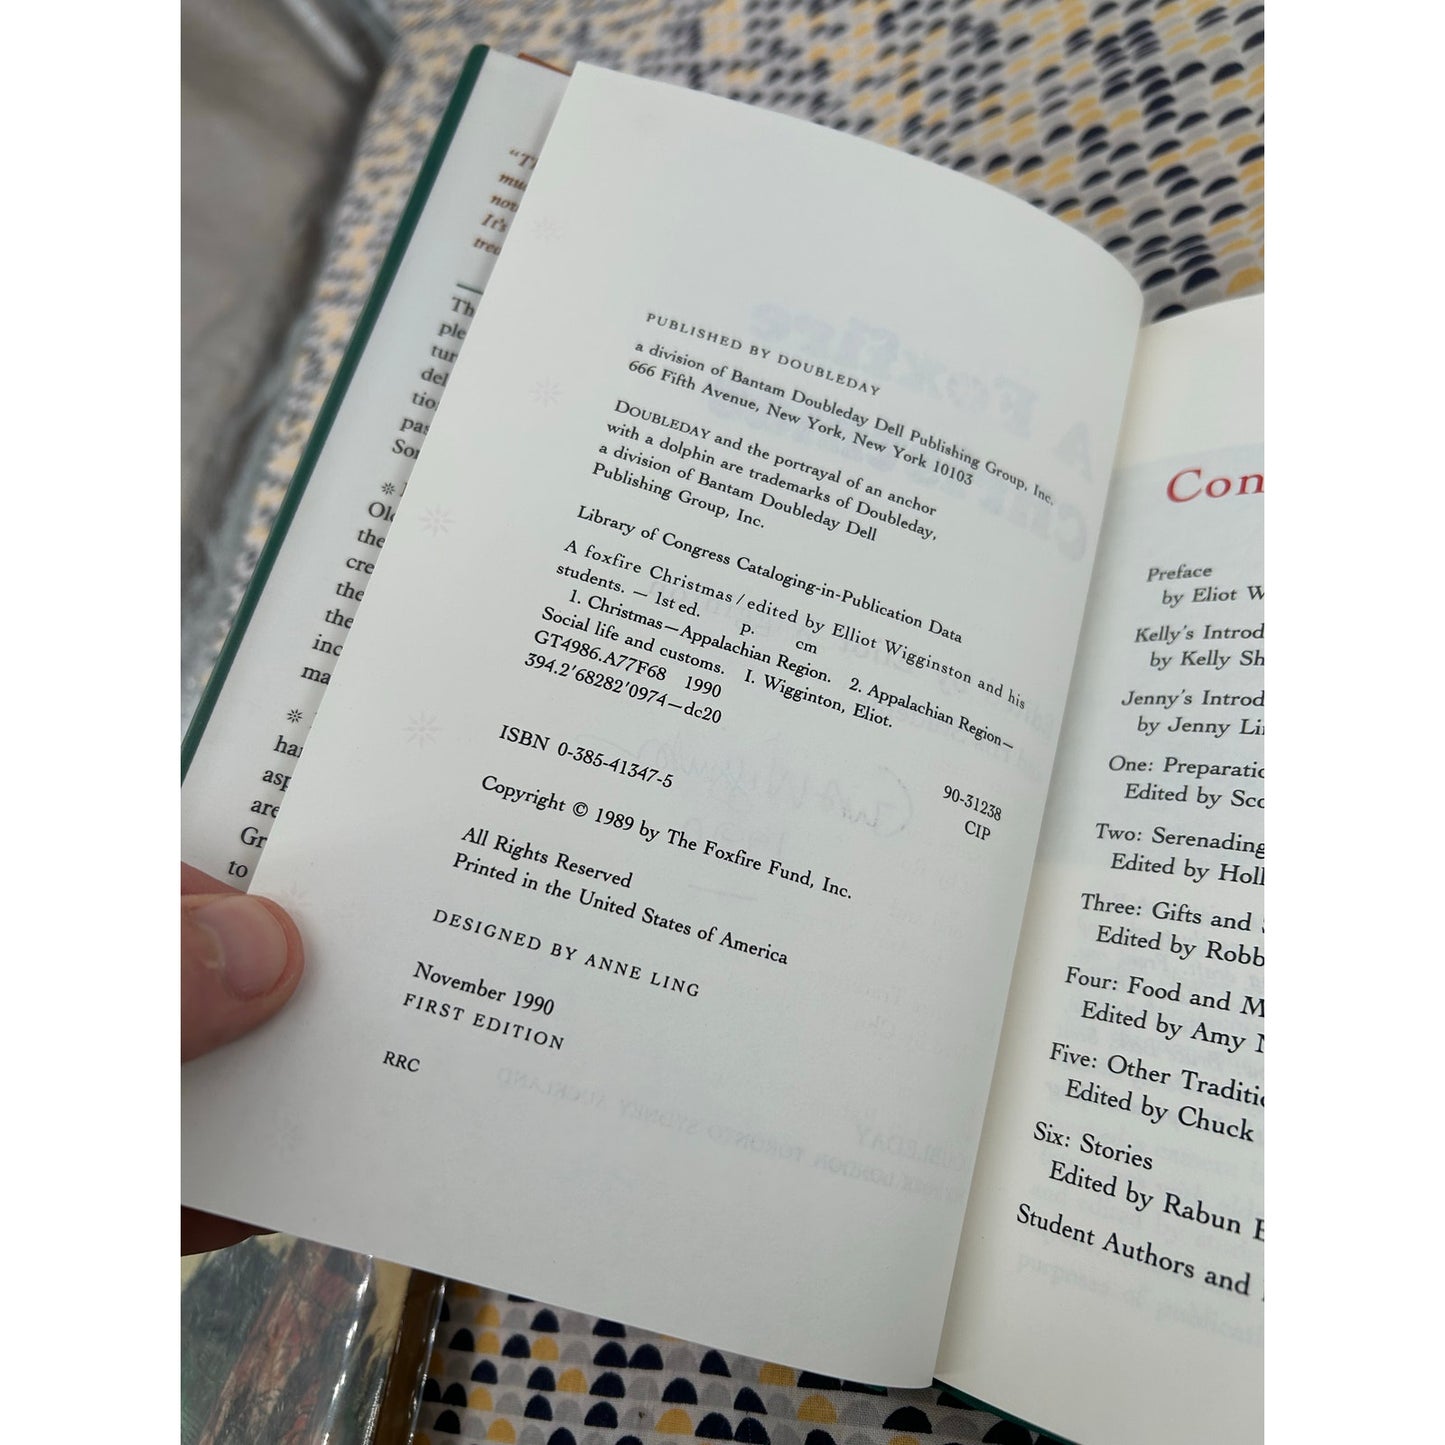 PUBLISHED BY DOUBLEDAY
a division of Bantam Doubleday Dell Publishing Group, Inc.
666 Fifth Avenue, New York, New York 10103
DOUBLEDAY and the portrayal of an anchor
with a dolphin are trademarks of Doubleday,
a division of Bantam Doubleday Dell
Publishing Group, Inc.
Library of Congress Cataloging-in-Publication Data
A foxfire Christmas / edited by Elliot Wigginston and his
students. — 1st ed.    p.    cm
1. Christmas—Appalachian Region.  2. Appalachian Region—
Social life and customs.  I. Wigginton, Eliot.
GT4986.A77F68  1990
394.2'68282'0974—dc20
90-31238
CIP
ISBN 0-385-41347-5
Copyright © 1989 by The Foxfire Fund, Inc.
All Rights Reserved
Printed in the United States of America
DESIGNED BY ANNE LING
November 1990
FIRST EDITION
RRC
Con
Preface
by Eliot W
Kelly's Introd
by Kelly Sh
Jenny's Introd
by Jenny Li
One: Preparatio
Edited by Sco
Two: Serenading
Edited by Holl
Three: Gifts and
Edited by Robb
Four: Food and M
Edited by Amy
Five: Other Traditio
Edited by Chuck
Six: Stories
Edited by Rabun
Student Authors and